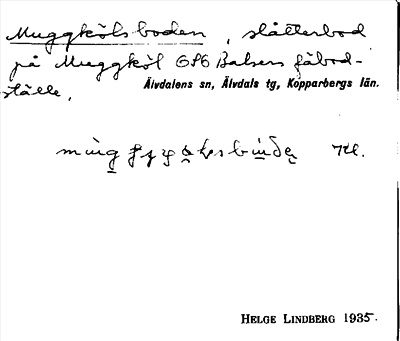 Muggkölsboden, slåtterbod
på Muggköl GSG Balsers fäbod-
ställe.
Älvdalens sn, Älvdals tg, Kopparbergs län.
HELGE LINDBERG 1935.